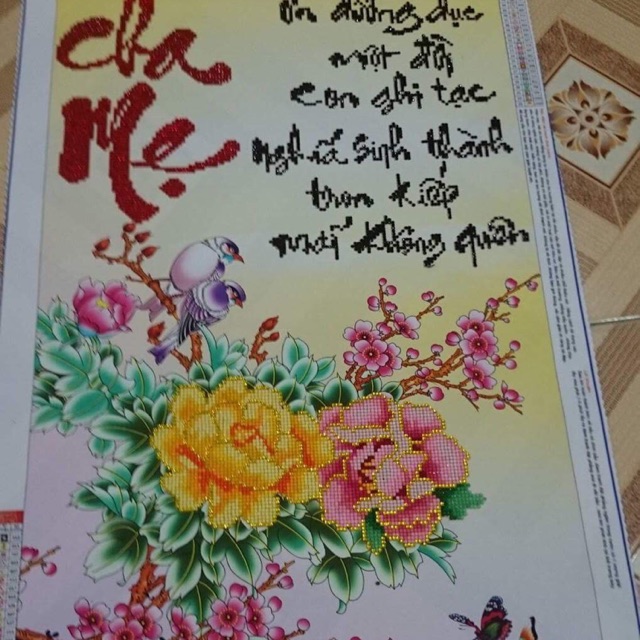 cha
Mẹ
Ơn dưỡng dục
một đời
con ghi tạc
Nghĩa sinh thành
trọn kiếp
mãi không quên